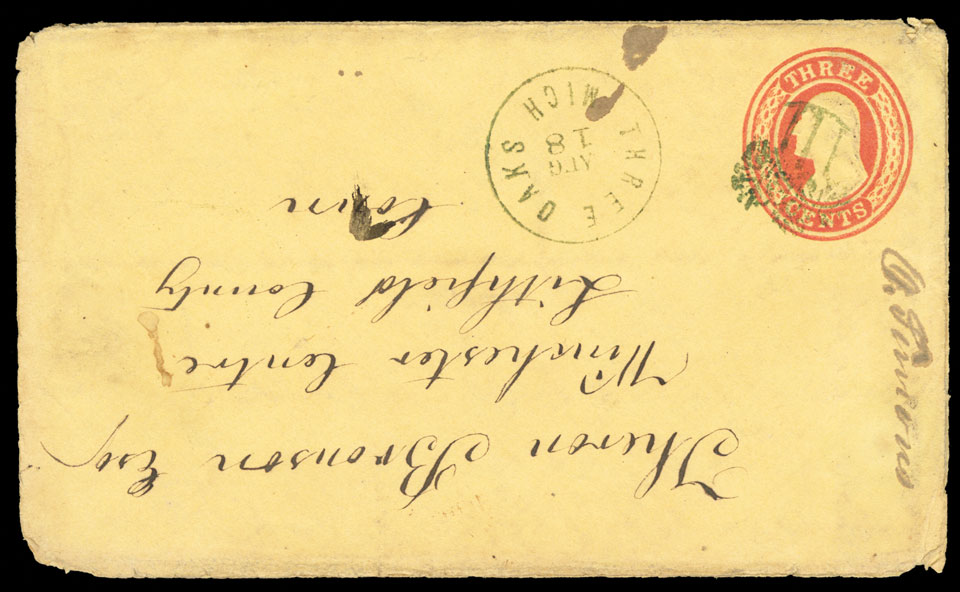 THREE
CENTS
THREE OAKS MICH
AUG
18
III
Theron Bronson Esq
Winchester Centre
Litchfield County
Conn